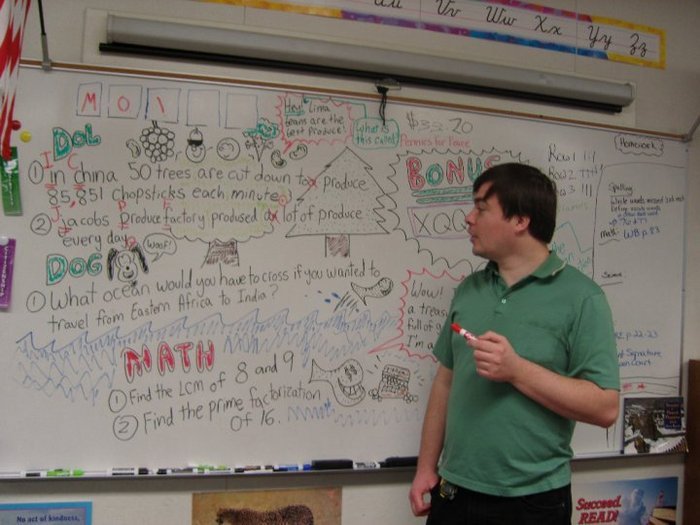 Uu Vv Ww Xx Yy Zz
M O I
Hey! Lima
beans are the
best produce!
What is
this called?
$33.20
Pennies for Peace
Homework
DOL
BONUS
Row 1
Row 2
① in china 50 trees are cut down to produce
85,851 chopsticks each minute
② Jacobs Produce factory prodused a lot of produce
every day.
Woof!
XQQ
Spelling
math: WB p.83
DOG
① What ocean would you have to cross if you wanted to
travel from Eastern Africa to India?
Wow!
a treasu
full of g
I'm a
MATH
① Find the LCM of 8 and 9
② Find the prime factorization
of 16.
p.22-23
Signature
Court
CITIZENSHIP
No act of kindness,
Succeed.
READ!